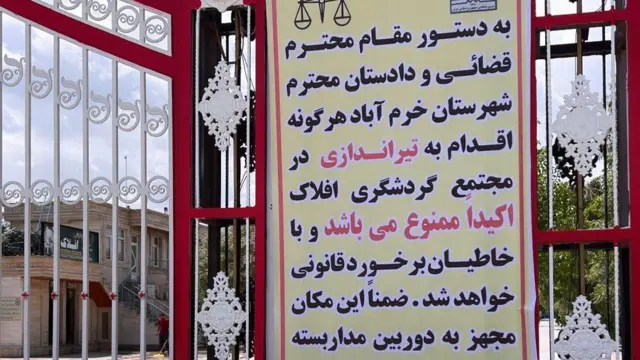 به دستور مقام محترم
قضائی و دادستان محترم
شهرستان خرم آباد هرگونه
اقدام به تیراندازی در
مجتمع گردشگری افلاک
اکیداً ممنوع می باشد و با
خاطیان برخورد قانونی
خواهد شد. ضمناً این مکان
مجهز به دوربین مداربسته
افلاک